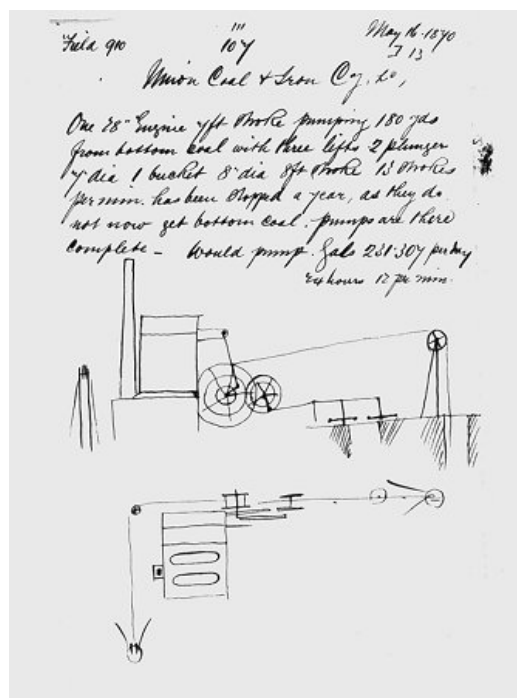 Field 910
111
107
May 16-1870
J 13
Union Coal & Iron Coy. Lo,
One 28" Engine 7ft Stroke pumping 180 yds
from bottom coal with three lifts 2 plunger
7" dia 1 bucket 8" dia 8ft Stroke 13 Strokes
per min. has been stopped a year, as they do
not now get bottom coal. pumps are there
complete - Would pump. Gals 231.307 per day
24 hours 12 per min.